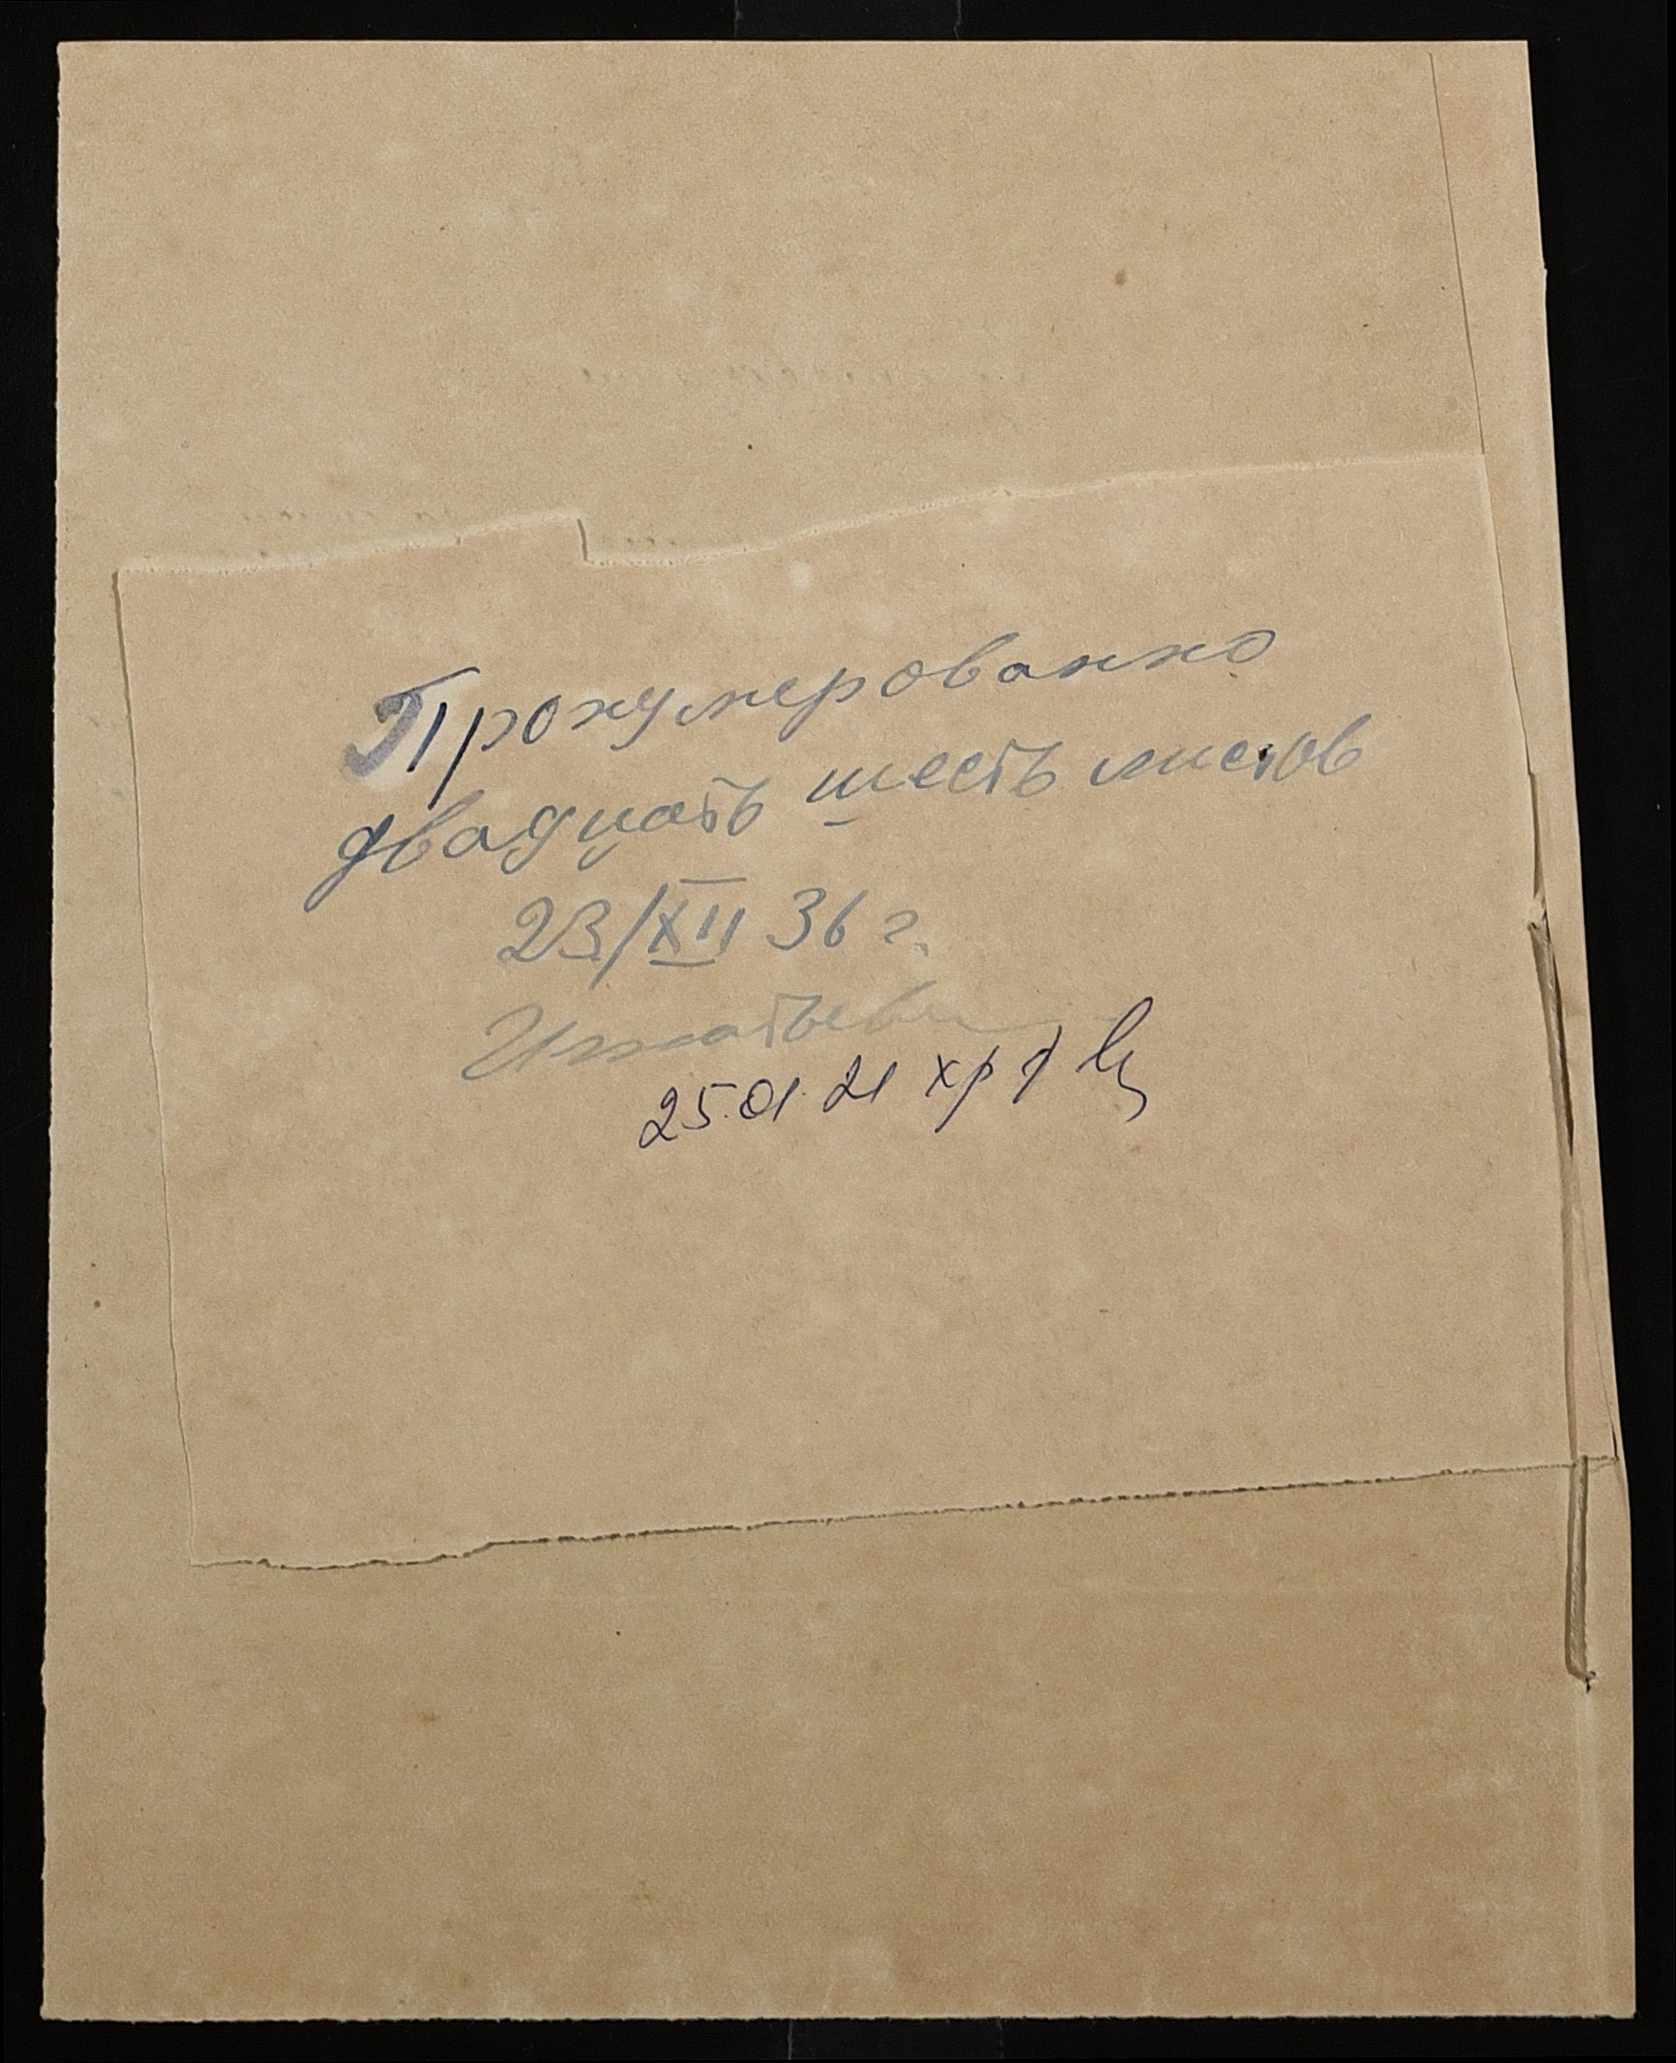 Пронумерованно
двадцать шесть листов
23/XII 36 г.
Игнатьева
25.01.21 хр